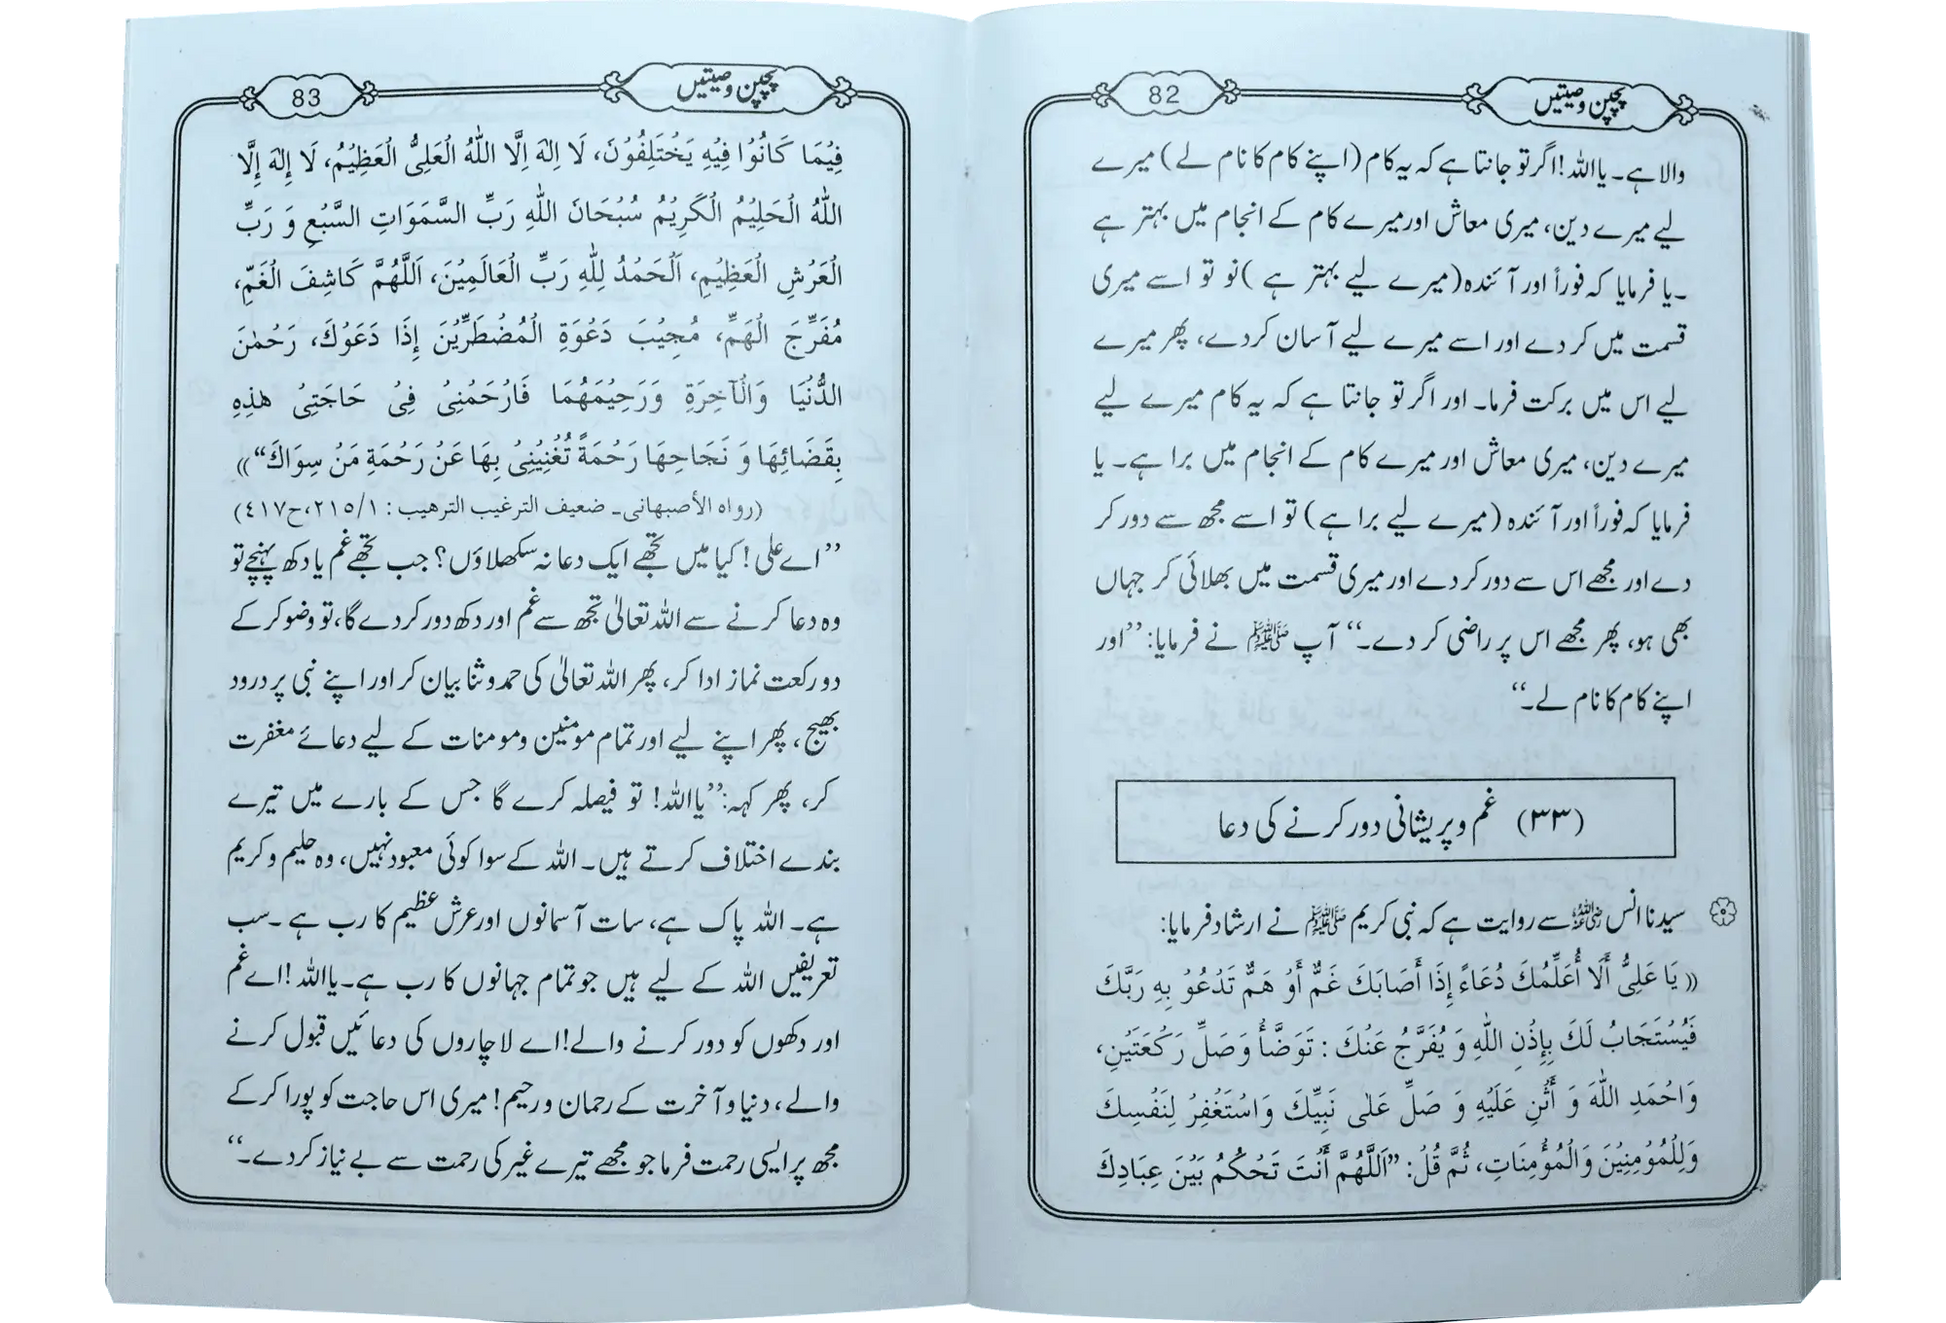 پچپن وصیتیں
82
والا ہے۔ یا اللہ! اگر تو جانتا ہے کہ یہ کام (اپنے کام کا نام لے) میرے
لیے میرے دین، میری معاش اور میرے کام کے انجام میں بہتر ہے
۔یا فرمایا کہ فوراً اور آئندہ (میرے لیے بہتر ہے )نو تو اسے میری
قسمت میں کر دے اور اسے میرے لیے آسان کر دے، پھر میرے
لیے اس میں برکت فرما۔ اور اگر تو جانتا ہے کہ یہ کام میرے لیے
میرے دین، میری معاش اور میرے کام کے انجام میں برا ہے۔ یا
فرمایا کہ فوراً اور آئندہ (میرے لیے برا ہے) تو اسے مجھ سے دور کر
دے اور مجھے اس سے دور کر دے اور میری قسمت میں بھلائی کر جہاں
بھی ہو، پھر مجھے اس پر راضی کر دے۔‘‘ آپ ﷺ نے فرمایا: ’’اور
اپنے کام کا نام لے۔‘‘
(۳۳) غم و پریشانی دور کرنے کی دعا
سیدنا انس رضی اللہ عنہ سے روایت ہے کہ نبی کریم ﷺ نے ارشاد فرمایا:
(( يَا عَلِىُّ أَلَا أُعَلِّمُكَ دُعَاءً إِذَا أَصَابَكَ غَمٌّ أَوْ هَمٌّ تَدْعُوْ بِهِ رَبَّكَ
فَيُسْتَجَابُ لَكَ بِإِذْنِ اللّٰهِ وَ يُفَرَّجُ عَنْكَ : تَوَضَّأْ وَ صَلِّ رَكْعَتَيْنِ،
وَاحْمَدِ اللّٰهَ وَ أَثْنِ عَلَيْهِ وَ صَلِّ عَلٰى نَبِيِّكَ وَاسْتَغْفِرْ لِنَفْسِكَ
وَلِلْمُؤْمِنِيْنَ وَالْمُؤْمِنَاتِ، ثُمَّ قُلْ: ’’اَللّٰهُمَّ أَنْتَ تَحْكُمُ بَيْنَ عِبَادِكَ
پچپن وصیتیں
83
فِيْمَا كَانُوْا فِيْهِ يَخْتَلِفُوْنَ، لَا إِلٰهَ إِلَّا اللّٰهُ الْعَلِىُّ الْعَظِيْمُ، لَا إِلٰهَ إِلَّا
اللّٰهُ الْحَلِيْمُ الْكَرِيْمُ سُبْحَانَ اللّٰهِ رَبِّ السَّمَوَاتِ السَّبْعِ وَ رَبِّ
الْعَرْشِ الْعَظِيْمِ، اَلْحَمْدُ لِلّٰهِ رَبِّ الْعَالَمِيْنَ، اَللّٰهُمَّ كَاشِفَ الْغَمِّ،
مُفَرِّجَ الْهَمِّ، مُجِيْبَ دَعْوَةِ الْمُضْطَرِّيْنَ إِذَا دَعَوْكَ، رَحْمٰنَ
الدُّنْيَا وَالْآخِرَةِ وَرَحِيْمَهُمَا فَارْحَمْنِىْ فِىْ حَاجَتِىْ هٰذِهِ
بِقَضَائِهَا وَ نَجَاحِهَا رَحْمَةً تُغْنِيْنِىْ بِهَا عَنْ رَحْمَةِ مَنْ سِوَاكَ‘‘))
(رواه الأصبهانى۔ ضعيف الترغيب الترهيب : ۲۱۵/۱، ح۴۱۷)
’’اے علی! کیا میں تجھے ایک دعا نہ سکھلاؤں؟ جب تجھے غم یا دکھ پہنچے تو
وہ دعا کرنے سے اللہ تعالیٰ تجھ سے غم اور دکھ دور کر دے گا، تو وضو کر کے
دو رکعت نماز ادا کر، پھر اللہ تعالیٰ کی حمد و ثنا بیان کر اور اپنے نبی پر درود
بھیج، پھر اپنے لیے اور تمام مومنین ومومنات کے لیے دعائے مغفرت
کر، پھر کہہ: ’’یا اللہ! تو فیصلہ کرے گا جس کے بارے میں تیرے
بندے اختلاف کرتے ہیں۔ اللہ کے سوا کوئی معبود نہیں، وہ حلیم و کریم
ہے۔ اللہ پاک ہے، سات آسمانوں اور عرش عظیم کا رب ہے ۔سب
تعریفیں اللہ کے لیے ہیں جو تمام جہانوں کا رب ہے۔یا اللہ! اے غم
اور دکھوں کو دور کرنے والے! اے لاچاروں کی دعائیں قبول کرنے
والے، دنیا و آخرت کے رحمان و رحیم! میری اس حاجت کو پورا کر کے
مجھ پر ایسی رحمت فرما جو مجھے تیرے غیر کی رحمت سے بے نیاز کر دے۔‘‘